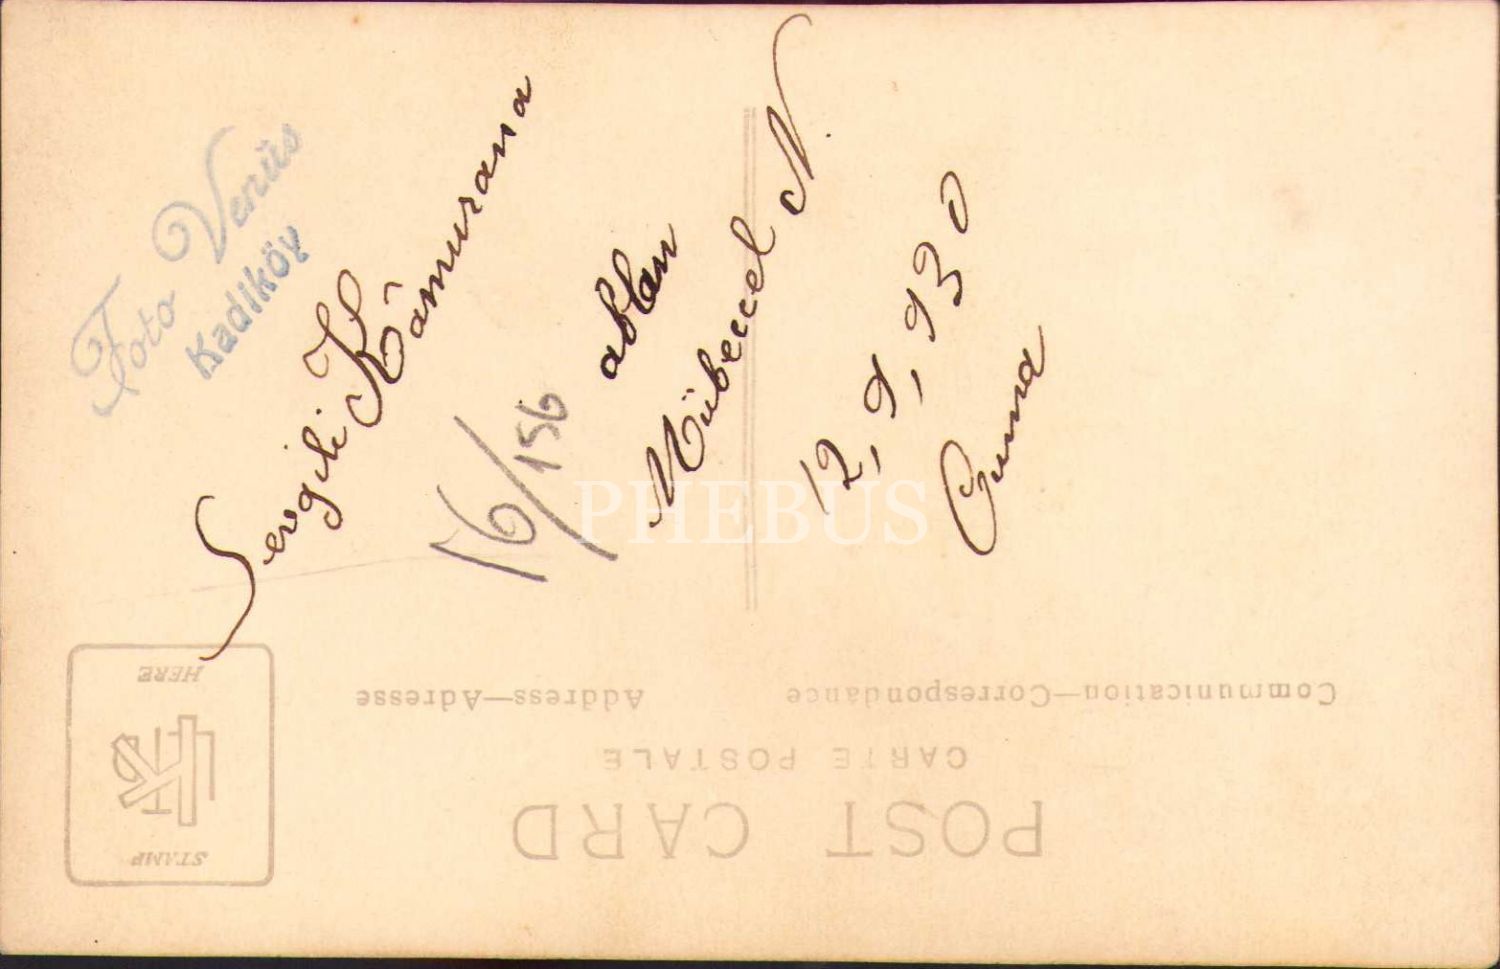 Foto Venüs
Kadıköy
Sevgili Kâmurana
ablan
Mübeccel N.
12, 9, 930
Cuma
16/156
PHEBUS
POST CARD
CARTE POSTALE
Communication—Correspondance
Address—Adresse
STAMP
HERE